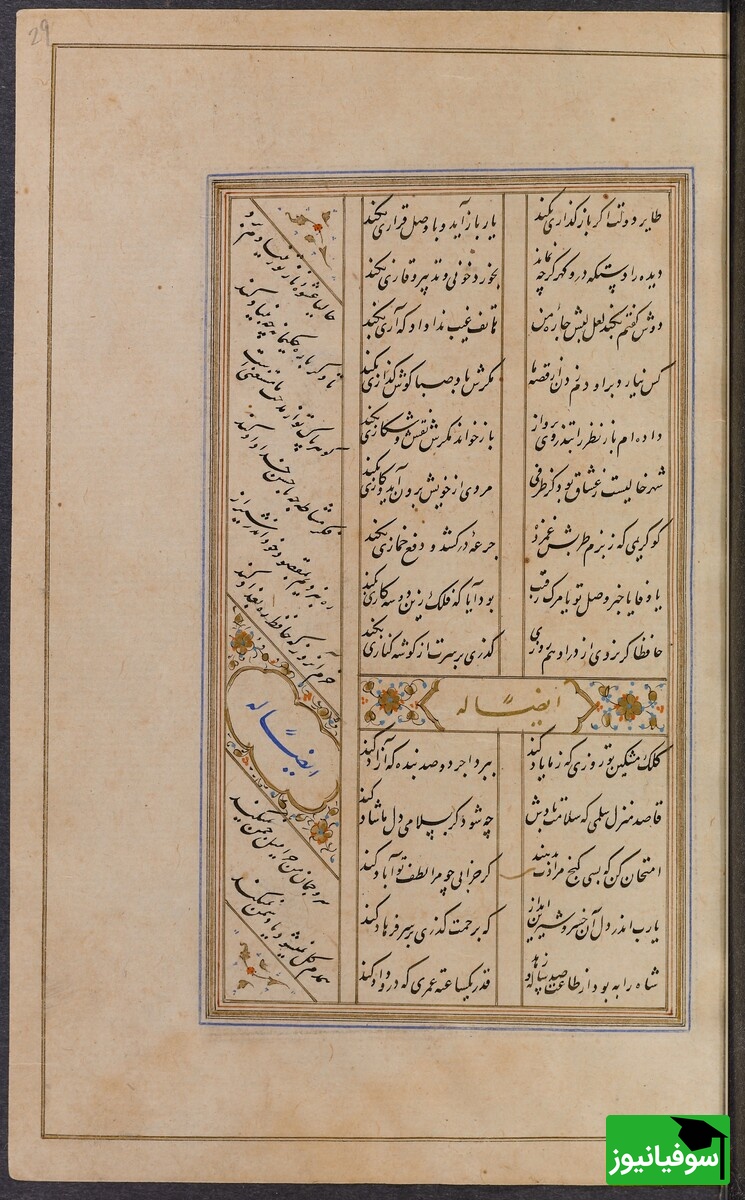 29
طایر دولت اگر باز گذاری بکند
یار باز آید و با وصل قراری بکند
دیده را دستگه در و گهر گرچه نماند
بخورد خونی و تدبیر و قاری بکند
دوش گفتم بکند لعل لبش چاره من
هاتف غیب ندا داد که آری بکند
کس نیارد بر او دم زدن از قصه ما
مگرش باد صبا گوش گذاری بکند
داده‌ام باز نظر را بتذروی پرواز
باز خواند مگرش نقش و شکاری بکند
شهر خالیست ز عشاق بود کز طرفی
مردی از خویش برون آید و کاری بکند
کو کریمی که ز بزم طربش غمزده
جرعه درکشد و دفع خماری بکند
یا وفا یا خبر وصل تو یا مرگ رقیب
بود آیا که فلک زین دو سه کاری بکند
حافظا گر نروی از در او هم روزی
گذری بر سرت از گوشه کناری بکند
ایضاً له
کلک مشکین تو روزی که ز ما یاد کند
ببرد اجر دو صد بنده که آزاد کند
قاصد منزل سلمی که سلامت بادش
چه شود گر بسلامی دل ما شاد کند
امتحان کن که بسی گنج مرادت بدهند
گر خرابی چو مرا لطف تو آباد کند
یارب اندر دل آن خسرو شیرین انداز
که برحمت گذری بر سر فرهاد کند
شاه را به بود از طاعت صد ساله و زهد
قدر یکساعته عمری که درو داد کند
حالیا عشوه ناز تو ز بنیادم برد
تا دگر باره حکیمانه چه بنیاد کند
گوهر پاک تو از مدحت ما مستغنی است
فکر مشاطه چه با حسن خداداد کند
ره نبردیم بمقصود خود اندر شیراز
خرم آن روز که حافظ ره بغداد کند
ایضاً له
سرو چمان من چرا میل چمن نمیکند
همدم گل نمیشود یاد سمن نمیکند
سوفیانیوز